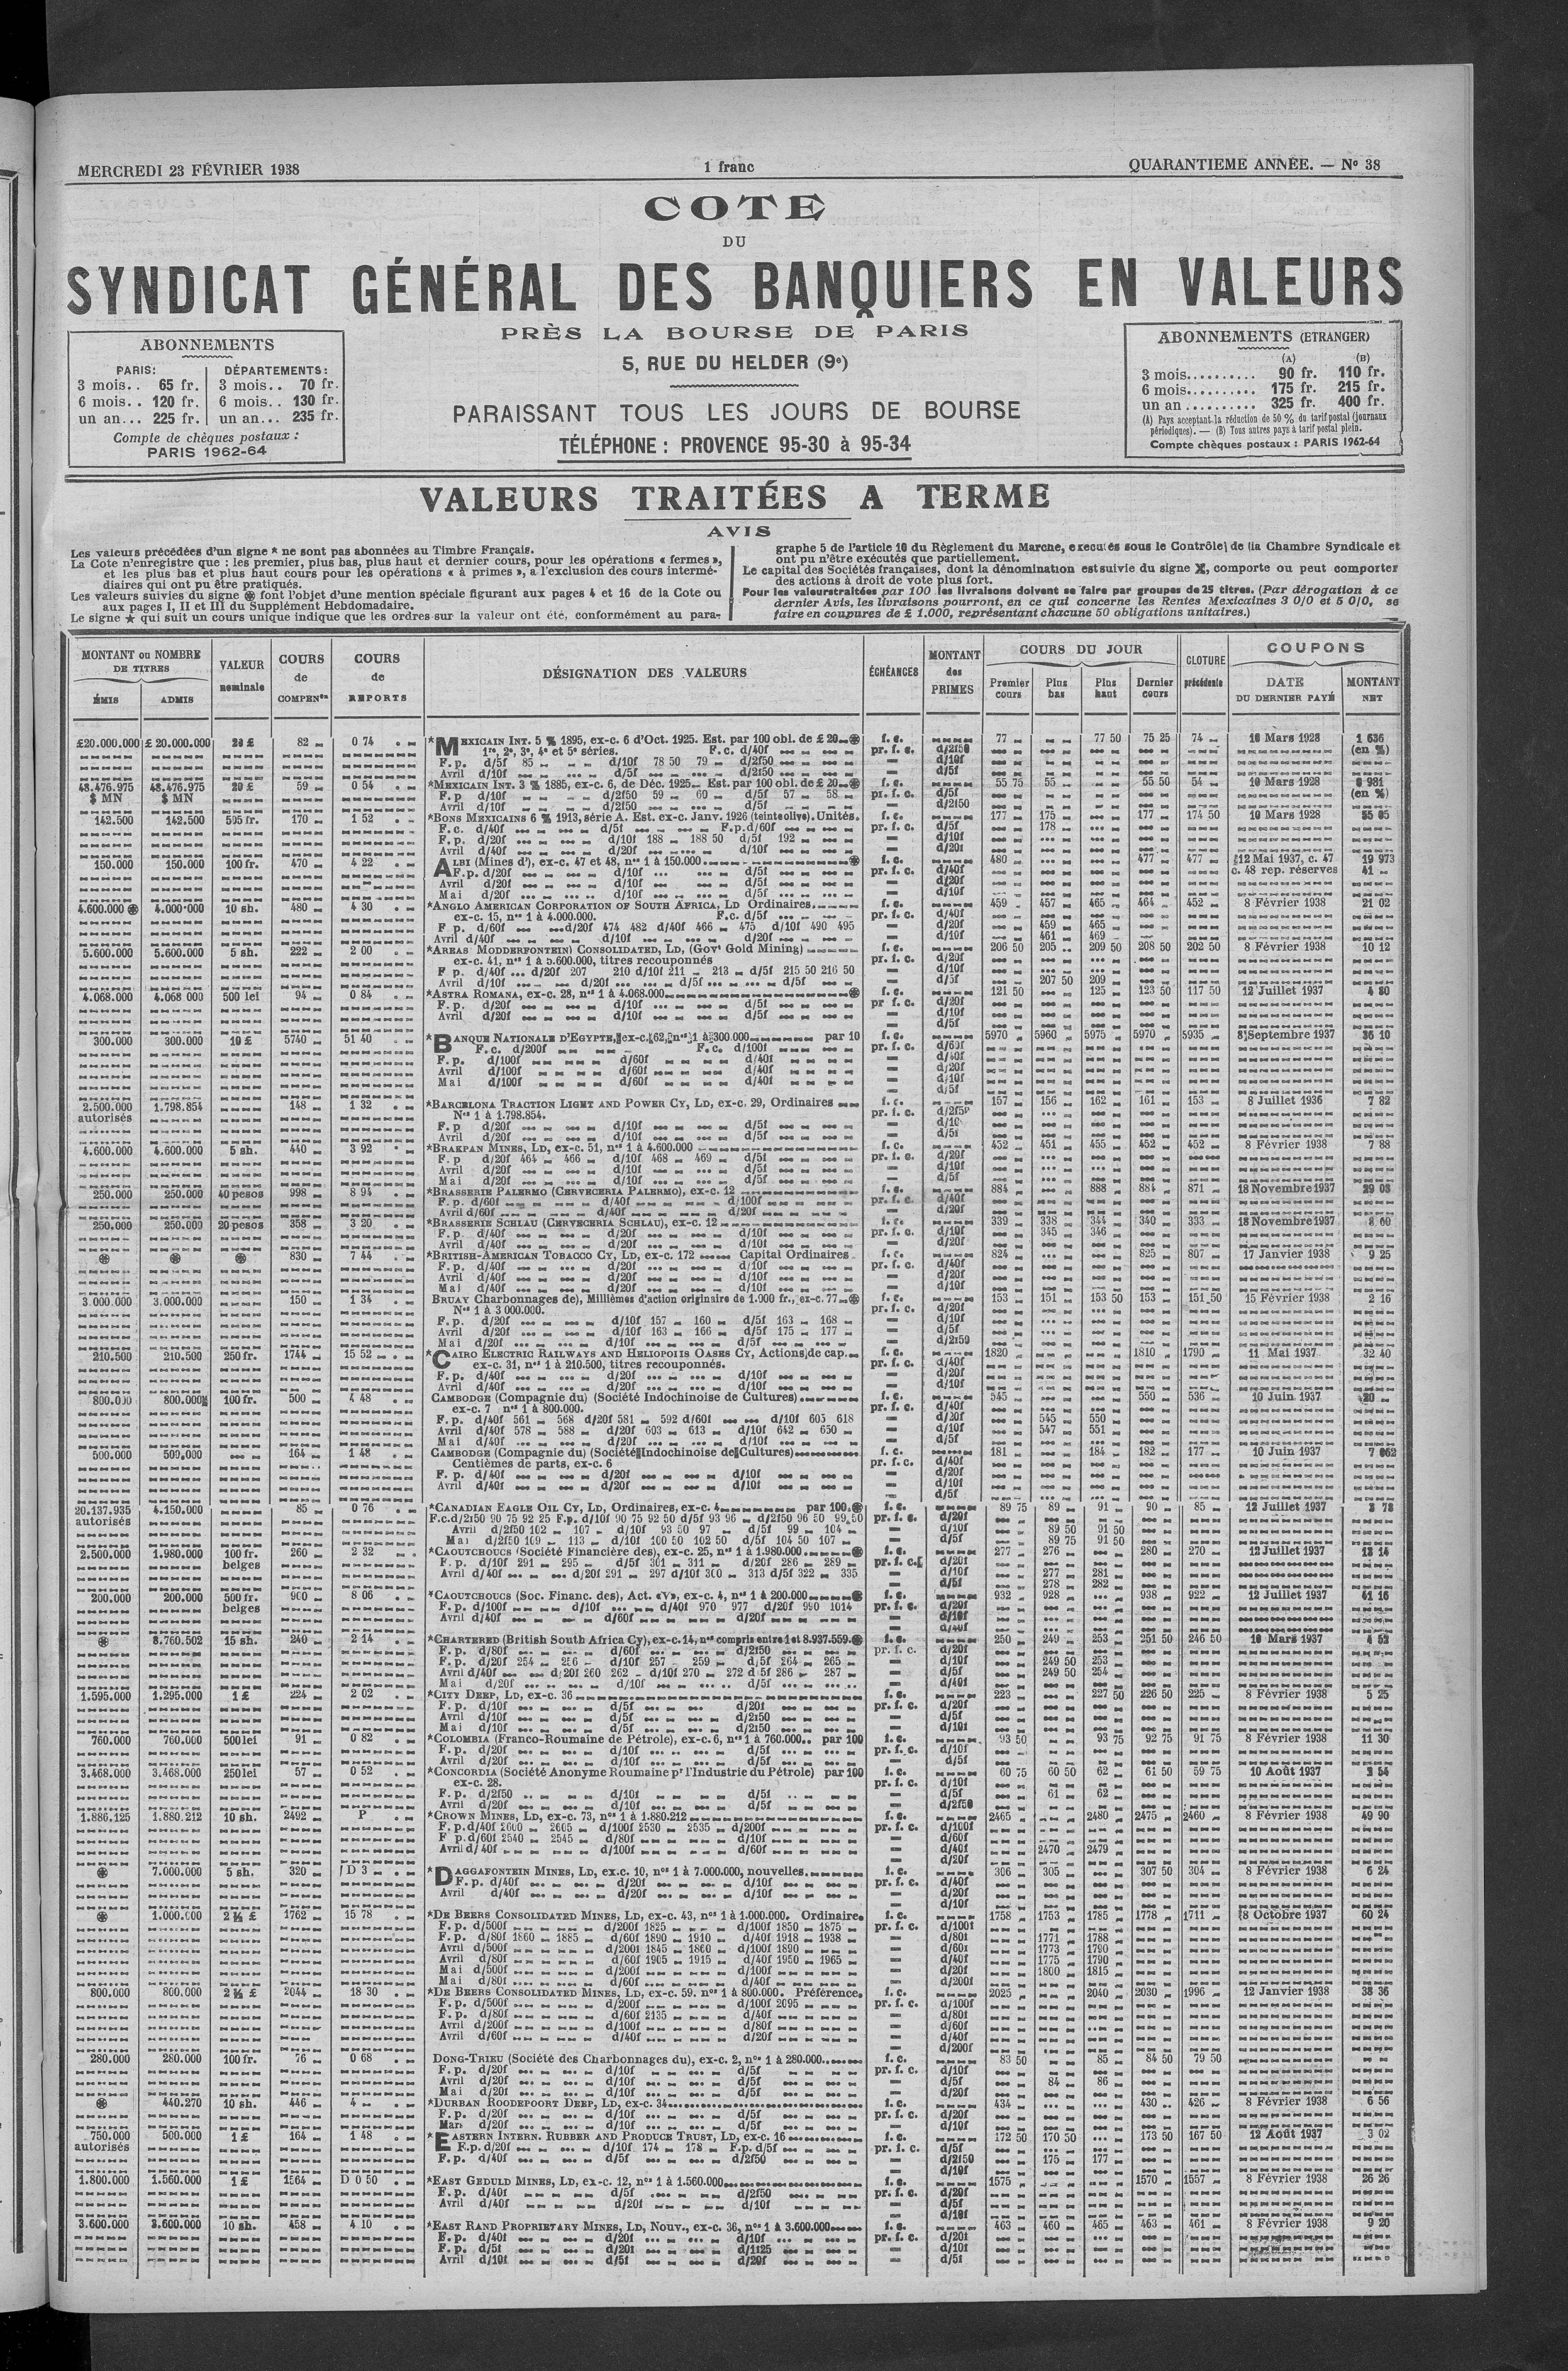 MERCREDI 23 FÉVRIER 1938
1 franc
QUARANTIEME ANNÉE. — No 38
COTE
DU
SYNDICAT GÉNÉRAL DES BANQUIERS EN VALEURS
PRÈS LA BOURSE DE PARIS
5, RUE DU HELDER (9e)
PARAISSANT TOUS LES JOURS DE BOURSE
TÉLÉPHONE : PROVENCE 95-30 à 95-34
ABONNEMENTS
PARIS: DÉPARTEMENTS:
3 mois.. 65 fr. 3 mois.. 70 fr.
6 mois.. 120 fr. 6 mois.. 130 fr.
un an... 225 fr. un an... 235 fr.
Compte de chèques postaux :
PARIS 1962-64
ABONNEMENTS (ETRANGER)
(A) (B)
3 mois.......... 90 fr. 110 fr.
6 mois.......... 175 fr. 215 fr.
un an .......... 325 fr. 400 fr.
(A) Pays acceptant la réduction de 50 % du tarif postal (journaux
périodiques). — (B) Tous autres pays à tarif postal plein.
Compte chèques postaux : PARIS 1962-64
VALEURS TRAITÉES A TERME
AVIS
Les valeurs précédées d'un signe * ne sont pas abonnées au Timbre Français.
La Cote n'enregistre que : les premier, plus bas, plus haut et dernier cours, pour les opérations « fermes »,
et les plus bas et plus haut cours pour les opérations « à primes », a l'exclusion des cours intermé-
diaires qui ont pu être pratiqués.
Les valeurs suivies du signe ֍ font l'objet d'une mention spéciale figurant aux pages 4 et 16 de la Cote ou
aux pages I, II et III du Supplément Hebdomadaire.
Le signe ★ qui suit un cours unique indique que les ordres sur la valeur ont été, conformément au para-
graphe 5 de l'article 10 du Règlement du Marche, executés sous le Contrôle de la Chambre Syndicale et
ont pu n'être exécutés que partiellement.
Le capital des Sociétés françaises, dont la dénomination est suivie du signe X, comporte ou peut comporter
des actions à droit de vote plus fort.
Pour les valeurs traitées par 100 les livraisons doivent se faire par groupes de 25 titres. (Par dérogation à ce
dernier Avis, les livraisons pourront, en ce qui concerne les Rentes Mexicaines 3 0/0 et 5 0/0, se
faire en coupures de £ 1.000, représentant chacune 50 obligations unitaires.)
MONTANT ou NOMBRE DE TITRES
ÉMIS ADMIS
VALEUR nominale
COURS de COMPENson
COURS de REPORTS
DÉSIGNATION DES VALEURS
ÉCHÉANCES
MONTANT des PRIMES
COURS DU JOUR
Premier cours Plus bas Plus haut Dernier cours
CLOTURE précédente
COUPONS
DATE DU DERNIER PAYÉ
MONTANT NET
£20.000.000 £ 20.000.000 20 £ 82 0 74 *MEXICAIN INT. 5 % 1895, ex-c. 6 d'Oct. 1925. Est. par 100 obl. de £ 20 f. c. 77 77 50 75 25 74 10 Mars 1928 1 636
1re, 2e, 3e, 4e et 5e séries. F.c. d/40f pr. f. c. d/2f50 (en %)
F.p. d/5f 85 d/10f 78 50 79 d/2f50 d/10f
Avril d/10f d/5f d/2f50 d/5f
48.476.975 48.476.975 20 £ 59 0 54 *MEXICAIN INT. 3 % 1885, ex-c. 6, de Déc. 1925 Est. par 100 obl. de £ 20 f. c. 55 75 55 55 50 54 10 Mars 1928 0 981
$ MN $ MN F.p d/10f d/2f50 59 60 d/5f 57 58 pr. f. c. d/5f (en %)
Avril d/10f d/2f50 d/5f d/2f50
142.500 142.500 505 fr. 170 1 52 *BONS MEXICAINS 6 % 1913, série A. Est. ex-c. Janv. 1926 (teinte olive). Unités. f. c. 177 175 177 174 50 10 Mars 1928 55 05
F.c. d/40f d/5f F.p. d/60f pr. f. c. d/5f 178
F.p. d/20f d/10f 188 188 50 d/5f 192 d/10f
Avril d/40f d/20f d/10f d/20f
150.000 150.000 100 fr. 470 4 22 ALBI (Mines d'), ex-c. 47 et 48, nos 1 à 150.000 f. c. 480 477 477 12 Mai 1937, c. 47 19 973
F.p. d/20f d/10f d/5f pr. f. c. d/40f c. 48 rep. réserves 41
Avril d/20f d/10f d/5f d/20f
Mai d/20f d/10f d/5f d/10f
4.600.000 4.000.000 10 sh. 480 4 30 *ANGLO AMERICAN CORPORATION OF SOUTH AFRICA, LD Ordinaires f. c. 459 457 465 464 452 8 Février 1938 21 02
ex-c. 15, nos 1 à 4.000.000. F.c. d/5f pr. f. c. d/40f
F p. d/60f d/20f 474 482 d/40f 466 475 d/10f 490 495 d/20f 459 465
Avril d/40f d/10f d/20f d/10f 461 469
5.600.000 5.600.000 5 sh. 222 2 00 *AREAS (MODDERFONTEIN) CONSOLIDATED, LD, (Govt Gold Mining) f. c. 206 50 205 209 50 208 50 202 50 8 Février 1938 10 12
ex-c. 41, nos 1 à 5.600.000, titres recouponnés pr. f. c. d/20f
F p. d/40f d/20f 207 210 d/10f 211 213 d/5f 215 50 216 50 d/10f
Avril d/10f d/20f d/5f d/5f d/5f 207 50 209
4.068.000 4.068 000 500 lei 94 0 84 *ASTRA ROMANA, ex-c. 28, nos 1 à 4.068.000 f. c. 121 50 125 123 50 117 50 12 Juillet 1937 4 80
F.p. d/20f d/10f d/5f pr f. c. d/20f
Avril d/20f d/10f d/5f d/10f
d/5f
300.000 300.000 10 £ 5740 51 40 *BANQUE NATIONALE D'EGYPTE, ex-c. 62, nos 1 à 300.000 par 10 f. c. 5970 5960 5975 5970 5935 8 Septembre 1937 36 10
F.c. d/200f F.c. d/100f pr. f. c. d/60f
F.p. d/100f d/60f d/40f d/40f
Avril d/100f d/60f d/40f d/20f
Mai d/100f d/60f d/40f d/10f
d/5f
2.500.000 1.798.854 148 1 32 *BARCELONA TRACTION LIGHT AND POWER CY, LD, ex-c. 29, Ordinaires f. c. 157 156 162 161 153 8 Juillet 1936 7 82
autorisés Nos 1 à 1.798.854. pr. f. c. d/2f50
F.p d/20f d/10f d/5f d/10
Avril d/20f d/10f d/5f d/5f
4.600.000 4.600.000 5 sh. 440 3 92 *BRAKPAN MINES, LD, ex-c. 51, nos 1 à 4.600.000 f. c. 452 451 455 452 452 8 Février 1938 7 88
F. p d/20f 464 466 d/10f 468 469 d/5f pr. f. c. d/20f
Avril d/20f d/10f d/5f d/10f
Mai d/20f d/10f d/5f d/5f
250.000 250.000 40 pesos 998 8 94 *BRASSERIE PALERMO (CERVECERIA PALERMO), ex-c. 12 f. c. 884 888 884 871 18 Novembre 1937 29 03
F.p. d/60f d/40f d/100f pr. f. c. d/40f
Avril d/60f d/40f d/20f d/20f
250.000 250.000 20 pesos 358 3 20 *BRASSERIE SCHLAU (CERVECERIA SCHLAU), ex-c. 12 f. c. 339 338 344 340 333 18 Novembre 1937 8 60
F.p. d/40f d/20f d/10f pr. f. c. d/10f 345 346
Avril d/40f d/20f d/10f d/20f
830 7 44 *BRITISH-AMERICAN TOBACCO CY, LD, ex-c. 172 Capital Ordinaires f. c. 824 825 807 17 Janvier 1938 9 25
F.p. d/40f d/20f d/10f pr. f. c. d/40f
Avril d/40f d/20f d/10f d/20f
Mai d/40f d/20f d/10f d/10f
3.000.000 3.000.000 150 1 34 BRUAY Charbonnages de), Millièmes d'action originaire de 1.000 fr., ex-c. 77 f. c. 153 151 153 50 153 151 50 15 Février 1938 2 16
Nos 1 à 3 000.000. pr. f. c. d/20f
F.p. d/20f d/10f 157 160 d/5f 163 168 d/10f
Avril d/20f d/10f 163 166 d/5f 175 177 d/5f
Mai d/20f d/10f d/5f d/2f50
210.500 210.500 250 fr. 1744 15 52 *CAIRO ELECTRIC RAILWAYS AND HELIOPOLIS OASES CY, Actions de cap. f. c. 1820 1810 1790 11 Mai 1937 32 40
ex-c. 31, nos 1 à 210.500, titres recouponnés. pr. f. c. d/40f
F.p. d/40f d/20f d/10f d/20f
Avril d/40f d/20f d/10f d/10f
800.000 800.000 100 fr. 500 4 48 CAMBODGE (Compagnie du) (Société Indochinoise de Cultures) f. c. 545 550 536 10 Juin 1937 20
ex-c. 7 nos 1 à 800.000. pr. f. c. d/40f
F.p. d/40f 561 568 d/20f 581 592 d/60f d/10f 605 618 d/20f 545 550
Avril d/40f 578 588 d/20f 603 613 d/10f 642 650 d/10f 547 551
Mai d/40f d/20f d/10f d/5f
500.000 500.000 164 1 48 CAMBODGE (Compagnie du) (Société Indochinoise de Cultures) f. c. 181 184 182 177 10 Juin 1937 7 062
Centièmes de parts, ex-c. 6 pr. f. c. d/40f
F. p. d/40f d/20f d/10f d/20f
Avril d/40f d/20f d/10f d/10f
d/5f
20.137.935 4.150.000 85 0 76 *CANADIAN EAGLE OIL CY, LD, Ordinaires, ex-c. 4 par 100 f. c. 89 75 89 91 90 85 12 Juillet 1937 3 78
autorisés F.c. d/2f50 90 75 92 25 F.p. d/10f 90 75 92 50 d/5f 93 96 d/2f50 96 50 99 50 pr. f. c. d/20f
Avril d/2f50 102 107 d/10f 93 50 97 d/5f 99 104 d/10f 89 50 91 50
Mai d/2f50 109 113 d/10f 100 50 102 50 d/5f 104 50 107 d/5f 89 75 91 50
2.500.000 1.980.000 100 fr. 260 2 32 *CAOUTCHOUCS (Société Financière des), ex-c. 25, nos 1 à 1.980.000 f. c. 277 276 280 270 12 Juillet 1937 13 14
belges F. p. d/10f 291 295 d/5f 301 311 d/20f 286 289 pr. f. c. d/20f
Avril d/40f d/20f 291 297 d/10f 300 313 d/5f 322 335 d/10f 277 281
d/5f 278 282
200.000 200.000 500 fr. 900 8 06 *CAOUTCHOUCS (Soc. Financ. des), Act. «V», ex-c. 4, nos 1 à 200.000 f. c. 932 928 938 922 12 Juillet 1937 41 16
belges F. p. d/100f d/10f d/40f 970 977 d/20f 990 1014 pr. f. c. d/20f
Avril d/40f d/60f d/20f d/10f
d/40f
8.760.502 15 sh. 240 2 14 *CHARTERED (British South Africa Cy), ex-c. 14, nos compris entre 1 et 8.937.559. f. c. 250 249 253 251 50 246 50 10 Mars 1937 4 52
F. p. d/80f d/60f d/2f50 pr. f. c. d/20f
F. p. d/20f 254 256 d/10f 257 259 d/5f 264 265 d/10f 249 50 253
Avril d/40f d/20f 260 262 d/10f 270 272 d/5f 286 287 d/5f 249 50 254
Mai d/20f d/10f d/5f d/40f
1.595.000 1.295.000 1 £ 224 2 02 *CITY DEEP, LD, ex-c. 36 f. c. 223 227 50 226 50 225 8 Février 1938 5 25
F. p. d/10f d/5f d/20f pr. f. c. d/20f
Avril d/10f d/5f d/2f50 d/5f
Mai d/10f d/5f d/2f50 d/10f
760.000 760.000 500 lei 91 0 82 *COLOMBIA (Franco-Roumaine de Pétrole), ex-c. 6, nos 1 à 760.000.. par 100 f. c. 93 50 93 75 92 75 91 75 8 Février 1938 11 30
F. p. d/20f d/10f d/5f pr. f. c. d/10f
Avril d/20f d/10f d/5f d/5f
3.468.000 3.468.000 250 lei 57 0 52 *CONCORDIA (Société Anonyme Roumaine pr l'Industrie du Pétrole) par 100 f. c. 60 75 60 50 62 61 50 59 75 10 Août 1937 3 54
ex-c. 28. pr. f. c. d/10f
F. p. d/2f50 d/10f d/5f d/5f 61 62
Avril d/20f d/10f d/5f d/2f50
1.886.125 1.880.212 10 sh. 2492 P *CROWN MINES, LD, ex-c. 73, nos 1 à 1.880.212 f. c. 2465 2480 2475 2460 8 Février 1938 49 90
F. p. d/40f 2600 2605 d/100f 2530 2535 d/200f pr. f. c. d/100f
F p. d/60f 2540 2545 d/80f d/10f d/60f
Avril d/40f d/100f d/60f d/40f 2470 2479
d/20f
7.000.000 5 sh. 320 D 3 *DAGGAFONTEIN MINES, LD, ex.c. 10, nos 1 à 7.000.000, nouvelles. f. c. 306 305 307 50 304 8 Février 1938 6 24
F. p. d/40f d/20f d/10f pr. f. c. d/40f
Avril d/40f d/20f d/10f d/20f
d/10f
1.000.000 2 ½ £ 1762 15 78 *DE BEERS CONSOLIDATED MINES, LD, ex-c. 43, nos 1 à 1.000.000. Ordinaire. f. c. 1758 1753 1785 1778 1711 8 Octobre 1937 60 24
F. p. d/500f d/200f 1825 d/100f 1850 1875 pr. f. c. d/100f
F. p. d/80f 1860 1885 d/60f 1890 1910 d/40f 1918 1938 d/80f 1771 1788
Avril d/500f d/200f 1845 1860 d/100f 1890 d/60f 1773 1790
Avril d/80f d/60f 1905 1915 d/40f 1950 1965 d/40f 1775 1790
Mai d/500f d/200f d/100f d/20f 1800 1815
Mai d/80f d/60f d/40f d/200f
800.000 800.000 2 ½ £ 2044 18 30 *DE BEERS CONSOLIDATED MINES, LD, ex-c. 59. nos 1 à 800.000. Préférence. f. c. 2025 2040 2030 1996 12 Janvier 1938 38 36
F. p. d/500f d/200f d/100f 2095 pr. f. c. d/100f
F. p. d/80f d/60f 2135 d/40f d/80f
Avril d/200f d/100f d/80f d/60f
Avril d/60f d/40f d/20f d/40f
d/200f
280.000 280.000 100 fr. 76 0 68 DONG-TRIEU (Société des Charbonnages du), ex-c. 2, nos 1 à 280.000 f. c. 83 50 85 84 50 79 50
F. p. d/20f d/10f d/5f pr. f. c. d/10f
Avril d/20f d/10f d/5f d/5f 84 86
Mai d/20f d/10f d/5f d/20f
440.270 10 sh. 446 4 *DURBAN ROODEPOORT DEEP, LD, ex-c. 34 f. c. 434 430 426 8 Février 1938 6 56
F. p. d/20f d/10f d/5f pr. f. c. d/20f
Mars d/20f d/10f d/5f d/10f
750.000 500.000 1 £ 164 1 48 *EASTERN INTERN. RUBBER AND PRODUCE TRUST, LD, ex-c. 16 f. c. 172 50 170 50 173 50 167 50 12 Août 1937 3 02
autorisés F.p. d/20f d/10f 174 178 F.p. d/5f pr. f. c. d/5f
F. p. d/40f d/5f d/2f50 d/2f50 175 177
d/10f
1.800.000 1.560.000 1 £ 1564 D 0 50 *EAST GEDULD MINES, LD, ex-c. 12, nos 1 à 1.560.000 f. c. 1575 1570 1557 8 Février 1938 26 26
F. p. d/40f d/5f d/2f50 pr. f. c. d/20f
Avril d/40f d/20f d/10f d/5f
d/10f
3.600.000 3.600.000 10 sh. 458 4 10 *EAST RAND PROPRIETARY MINES, LD, Nouv., ex-c. 36, nos 1 à 3.600.000 f. c. 463 460 465 463 461 8 Février 1938 9 20
F. p. d/40f d/20f d/10f pr. f. c. d/20f
F. p. d/5f d/20f d/1f25 d/10f
Avril d/10f d/5f d/20f d/5f